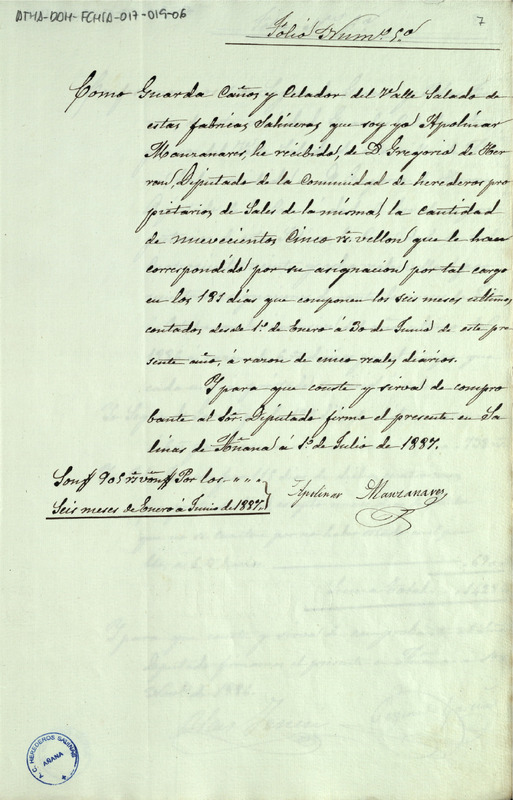 ATHA-DOH-FCHSA-017-019-06
7
Folio Num.º 5.º
Como Guarda Caños y Celador del Valle Salado de
estas fabricas Salineras que soy yo Apolinar
Manzanares, he recibido, de D. Gregorio de Her
ran, Diputado de la Comunidad de herederos pro
pietarios de Sales de la misma, la cantidad
de nuevecientos cinco rs. vellon que le han
correspondido por su asignacion por tal cargo
en los 181 dias que componen los seis meses ultimos
contados desde 1.º de Enero á 30 de Junio de este pre
sente año, á razon de cinco reales diarios.
Y para que conste y sirva de compro
bante al Sor. Diputado firmo el presente en Sa
linas de Añana á 1.º de Julio de 1887.
Son 905 rs. von Por los
Seis meses de Enero á Junio de 1887.
Apolinar Manzanares
A.C. HEREDEROS SALINAS
AÑANA